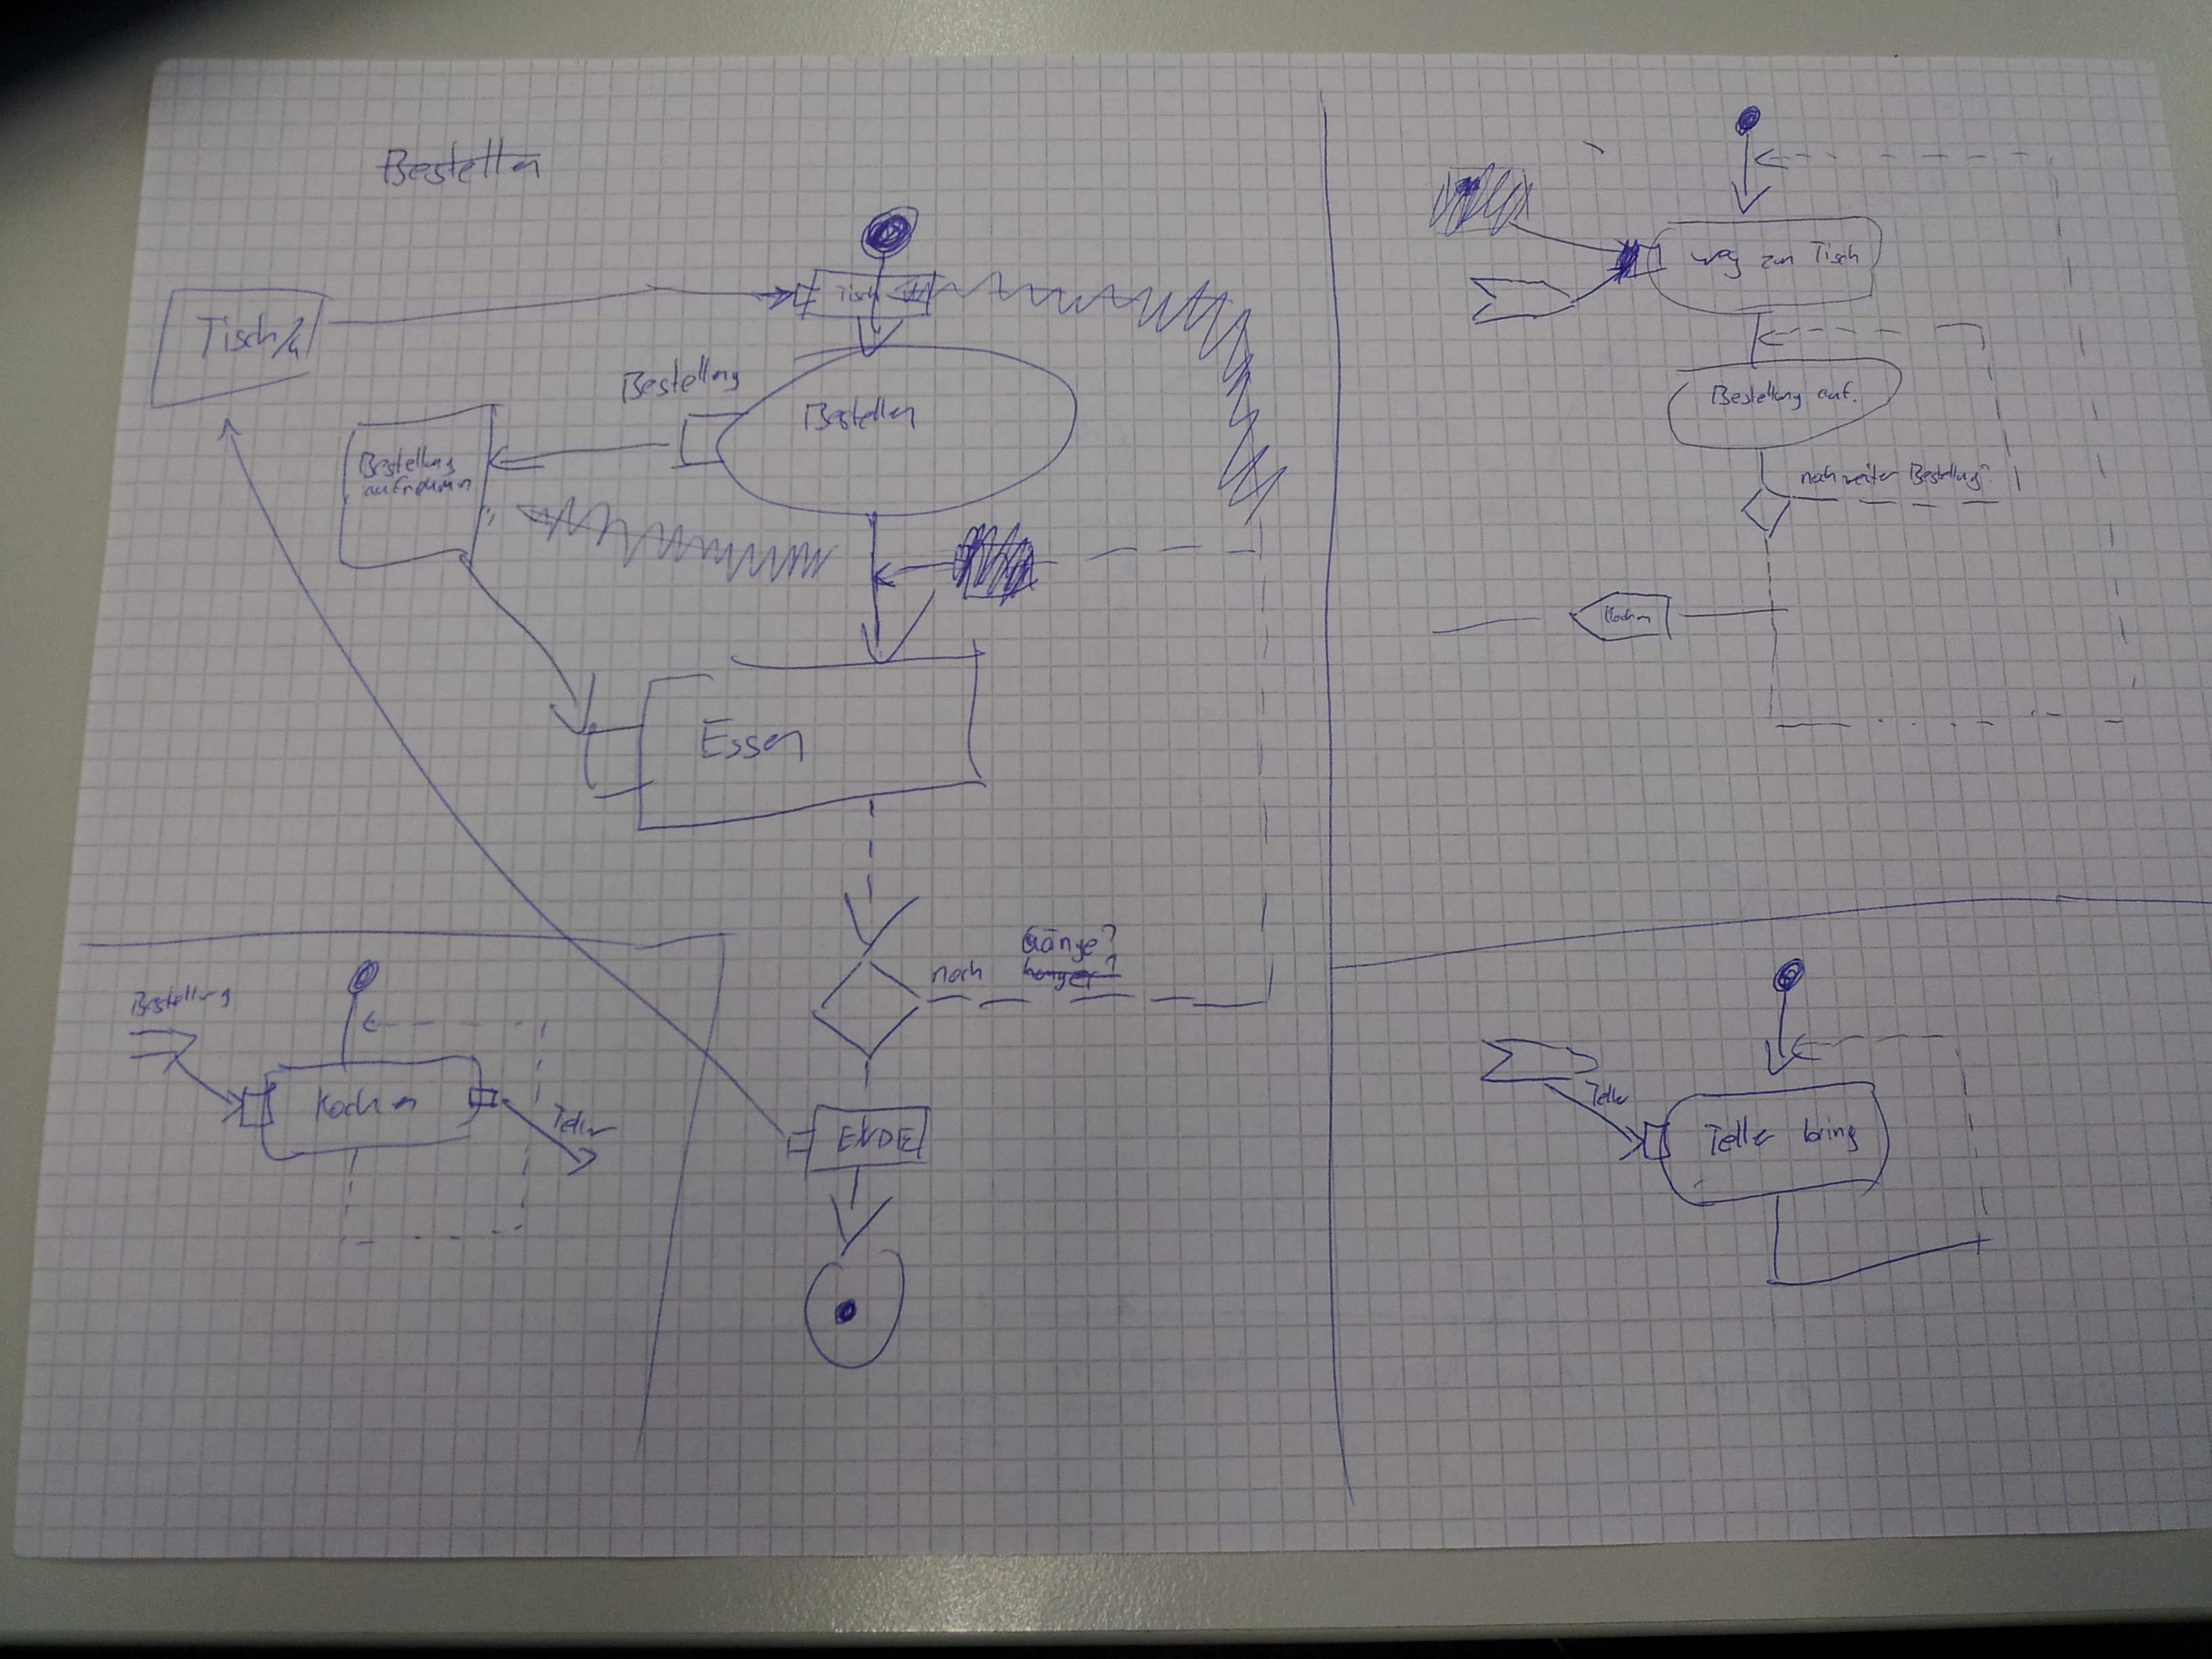 Bestellen
Tisch
Tisch
Bestellung
Bestellen
Bestellung
aufnehmen
Essen
noch Gänge?
hunger?
ENDE
Bestellung
Kochen
Teller
weg zum Tisch
Bestellung auf.
noch weiter Bestellung?
Kochen
Teller
Teller bring